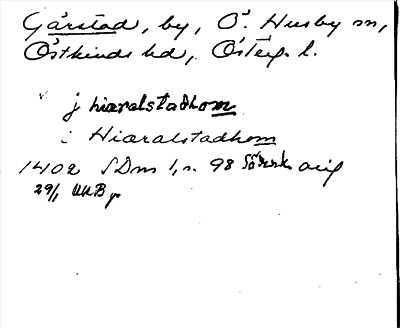 Gårstad, by, Ö. Husby sn,
Östkinds hd, Österg. l.
j hiæralstadhom
i Hiæralstadhom
1402 SDns 1, s. 98 orig
29/1 UUB